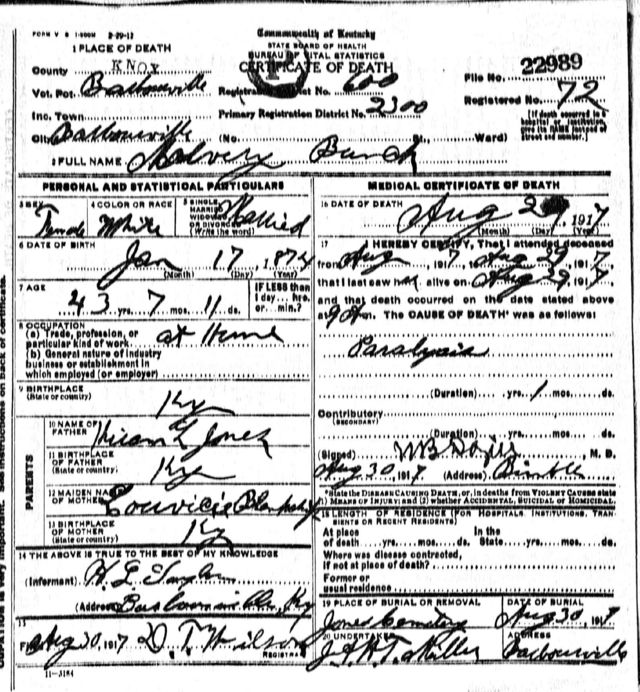 FORM V S 1-500M 2-29-12
Commonwealth of Kentucky
STATE BOARD OF HEALTH
BUREAU OF VITAL STATISTICS
CERTIFICATE OF DEATH
1 PLACE OF DEATH
County KNOX
Vot. Pct. Barbourville
Inc. Town
City Barbourville
Registration District No. 600
Primary Registration District No. 2300
(No. St., Ward)
File No. 22989
Registered No. 72
[If death occurred in a hospital or institution, give its NAME instead of street and number.]
2 FULL NAME Bunch
PERSONAL AND STATISTICAL PARTICULARS
3 SEX Female
4 COLOR OR RACE White
5 SINGLE, MARRIED, WIDOWED OR DIVORCED (Write the word) Married
6 DATE OF BIRTH
Jan 17, 1874
(Month) (Day) (Year)
7 AGE
43 yrs. 7 mos. 11 ds.
IF LESS than 1 day... hrs. or... min.?
8 OCCUPATION
(a) Trade, profession, or particular kind of work at Home
(b) General nature of industry
business or establishment in
which employed (or employer)
9 BIRTHPLACE
(State or country) Ky
PARENTS
10 NAME OF FATHER Hiram G Jones
11 BIRTHPLACE OF FATHER
(State or country) Ky
12 MAIDEN NAME OF MOTHER
13 BIRTHPLACE OF MOTHER
(State or country) Ky
14 THE ABOVE IS TRUE TO THE BEST OF MY KNOWLEDGE
(Informant)
(Address) Barbourville, Ky
15
Filed Aug 30, 1917 D. T. Wilson
REGISTRAR
11-3184
MEDICAL CERTIFICATE OF DEATH
16 DATE OF DEATH
Aug 29 1917
(Month) (Day) (Year)
17 I HEREBY CERTIFY, That I attended deceased
from Aug, 1917, to Aug 29, 1917
that I last saw her alive on Aug 29, 1917
and that death occurred on the date stated above
at 9 A m. The CAUSE OF DEATH* was as follows:
Paralysis
(Duration) yrs. 1 mos. ds.
Contributory
(SECONDARY)
(Duration) yrs. mos. ds.
(Signed) M. D.
Aug 30, 1917 (Address) Bimble
*State the DISEASE CAUSING DEATH, or, in deaths from VIOLENT CAUSES state
(1) MEANS OF INJURY; and (2) whether ACCIDENTAL, SUICIDAL or HOMICIDAL.
18 LENGTH OF RESIDENCE (FOR HOSPITALS, INSTITUTIONS, TRANSIENTS OR RECENT RESIDENTS)
At place of death yrs. mos. ds. In the State yrs. mos. ds.
Where was disease contracted,
if not at place of death?
Former or
usual residence
19 PLACE OF BURIAL OR REMOVAL
Jones Cemetery
DATE OF BURIAL
Aug 30, 1917
20 UNDERTAKER
Miller
ADDRESS
Barbourville